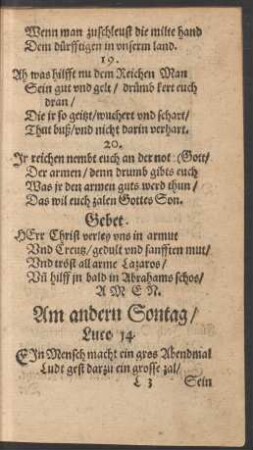 Wenn man zuschleust die milte hand
Dem dürfftigen in vnserm land.
19.
Ah was hilfft nu dem Reichen Man
Sein gut vnd gelt / drümb kert euch
dran /
Die jr so geitzt / wuchert vnd schart /
Thut buß / vnd nicht darin verhart.
20.
Jr reichen nembt euch an der not (Gott /
Der armen / denn drumb gibts euch
Was jr den armen guts werd thun /
Das wil euch zalen Gottes Son.
Gebet.
HErr Christ verley vns in armut
Vnd Creutz / gedult vnd sanfften mut /
Vnd tröst all arme Lazaros /
Vñ hilff jn bald in Abrahams schos /
A M E N.
Am andern Sontag /
Luce 14
EIn Mensch macht ein gros Abendmal
Ludt gest darzu ein grosse zal /
L 3 Sein